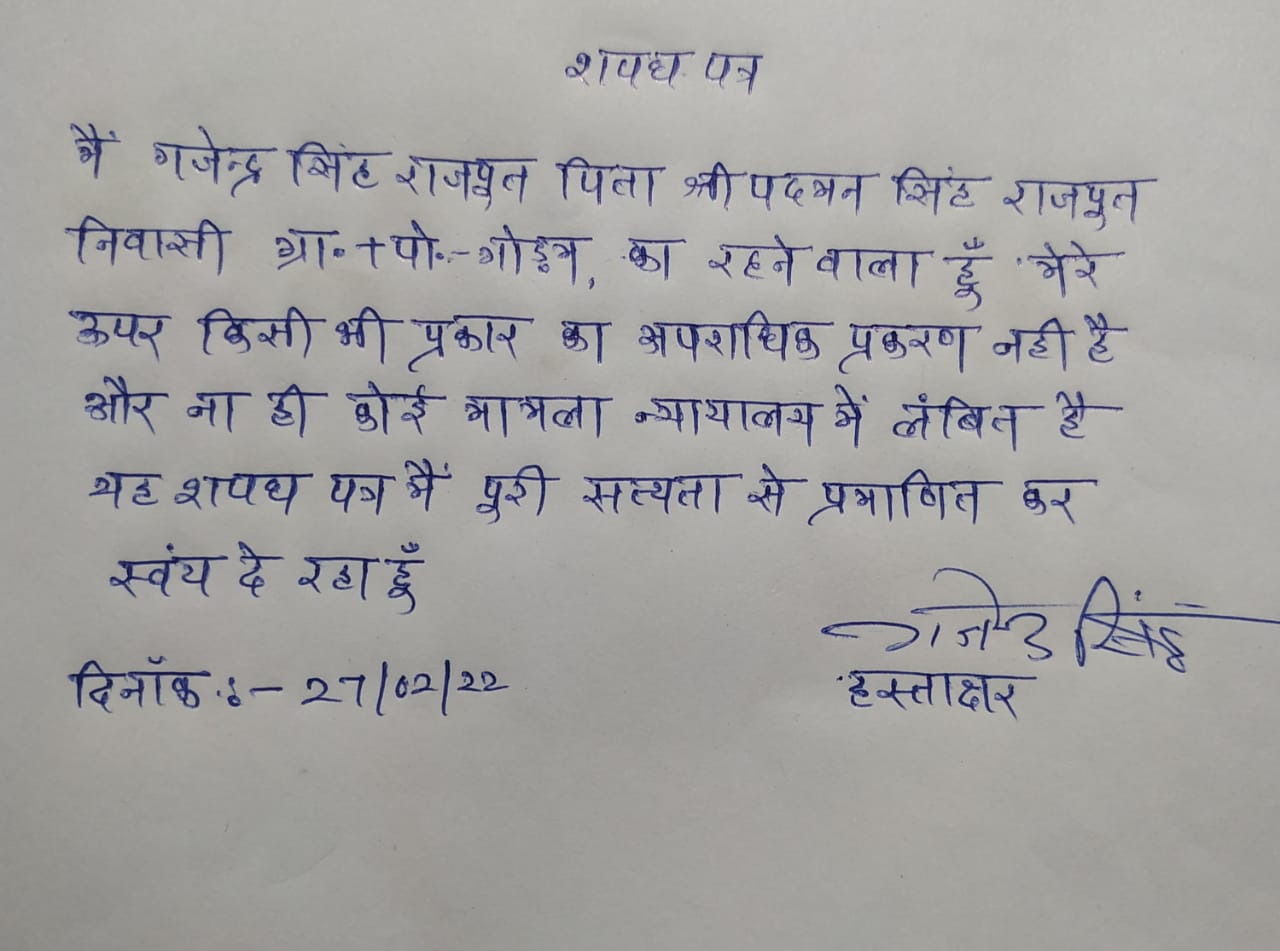 शपथ पत्र
मैं गजेन्द्र सिंह राजपूत पिता श्री पदमन सिंह राजपूत
निवासी ग्रा॰+पो॰-गोड़म, का रहने वाला हूँ मेरे
ऊपर किसी भी प्रकार का अपराधिक प्रकरण नही है
और ना ही कोई मामला न्यायालय में लंबित है
यह शपथ पत्र मैं पुरी सत्यता से प्रमाणित कर
स्वंय दे रहा हूँ
गजेन्द्र सिंह
दिनॉक :- 27/02/22 हस्ताक्षर